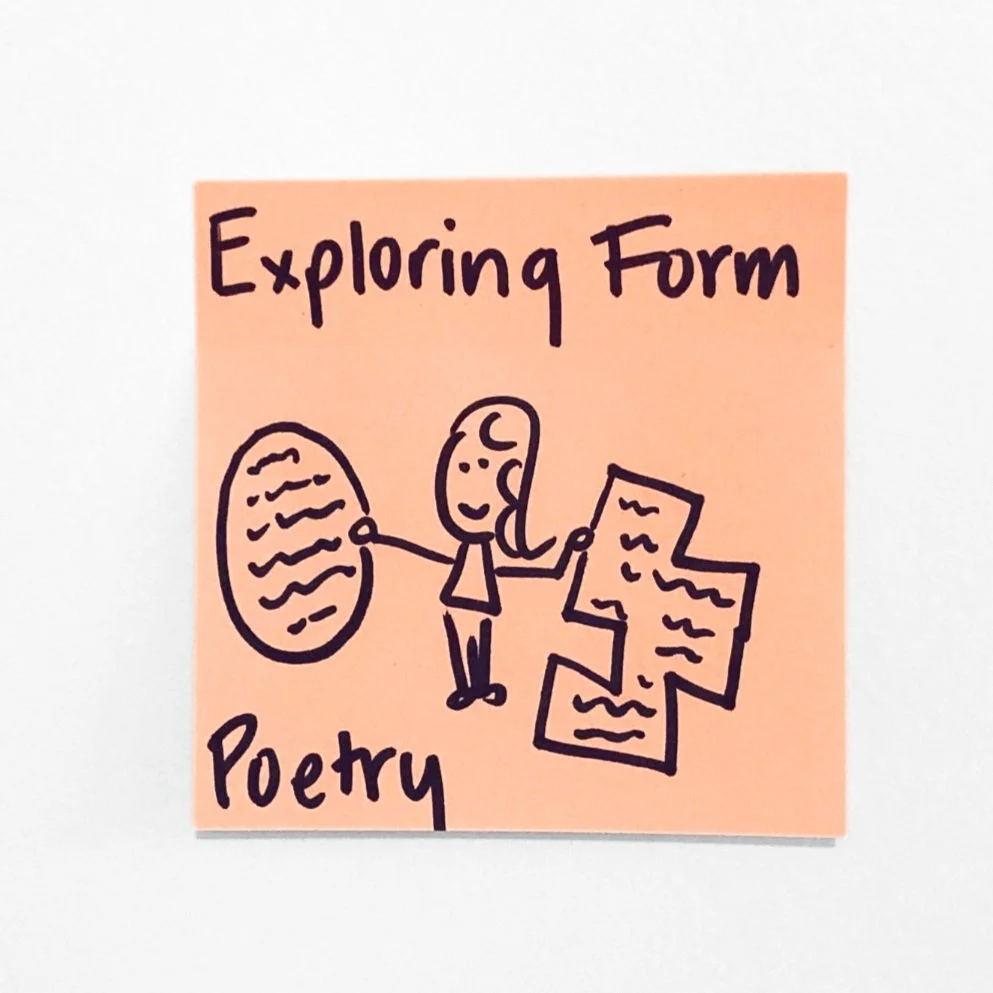 Exploring Form
Poetry